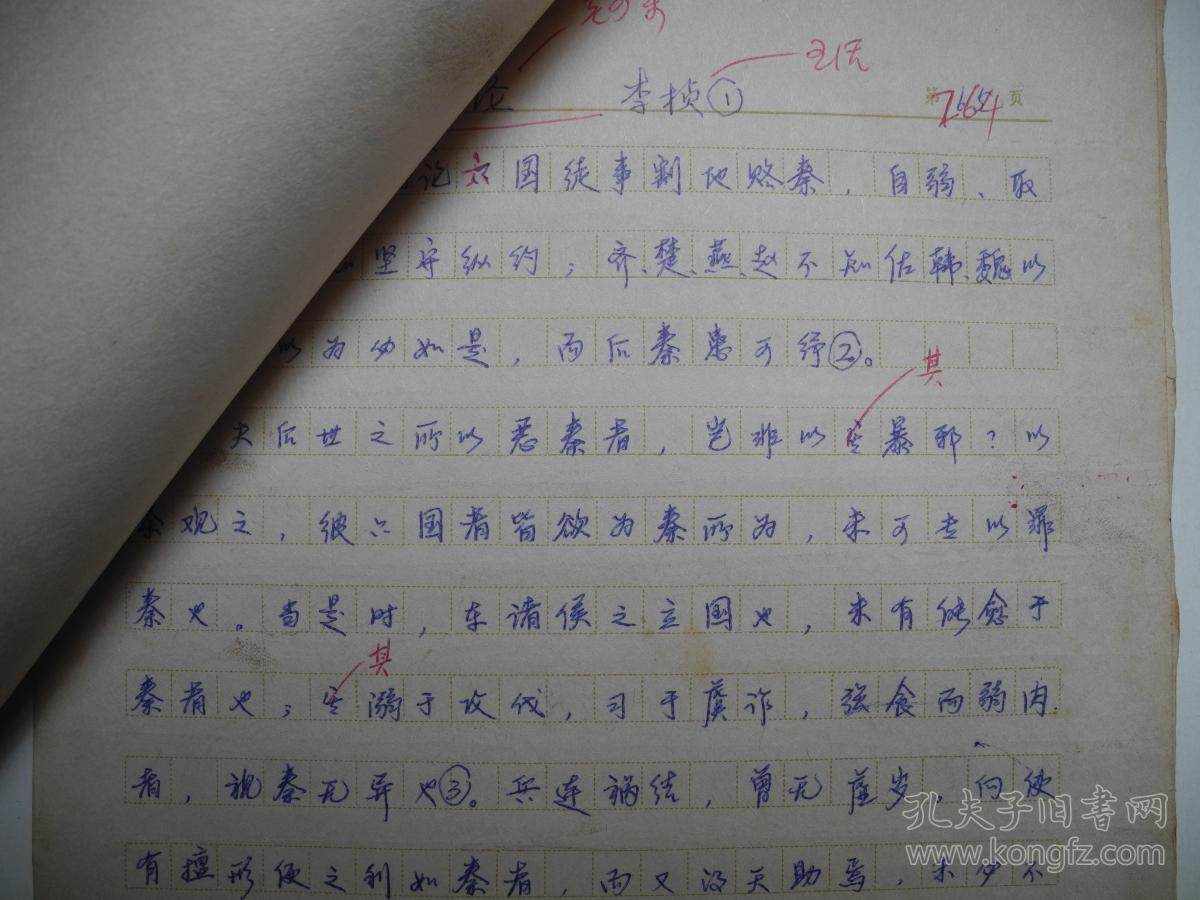 论 李桢①
第2664页
论六国徒事割地赂秦，自弱、取
坚守纵约；齐、楚、燕、赵不知佐韩、魏以
以为必如是，而后秦患可纾②。
其
夫后世之所以恶秦者，岂非以其暴邪？以
余观之，彼六国者皆欲为秦所为，未可专以罪
秦也。当是时，东诸侯之立国也，未有能愈于
其
秦者也；其溺于攻伐，习于虞诈，强食而弱肉
者，视秦无异也③。兵连祸结，曾无虚岁，向使
有擅形便之利如秦者，而又得天助焉，未必不
孔夫子旧书网
www.kongfz.com